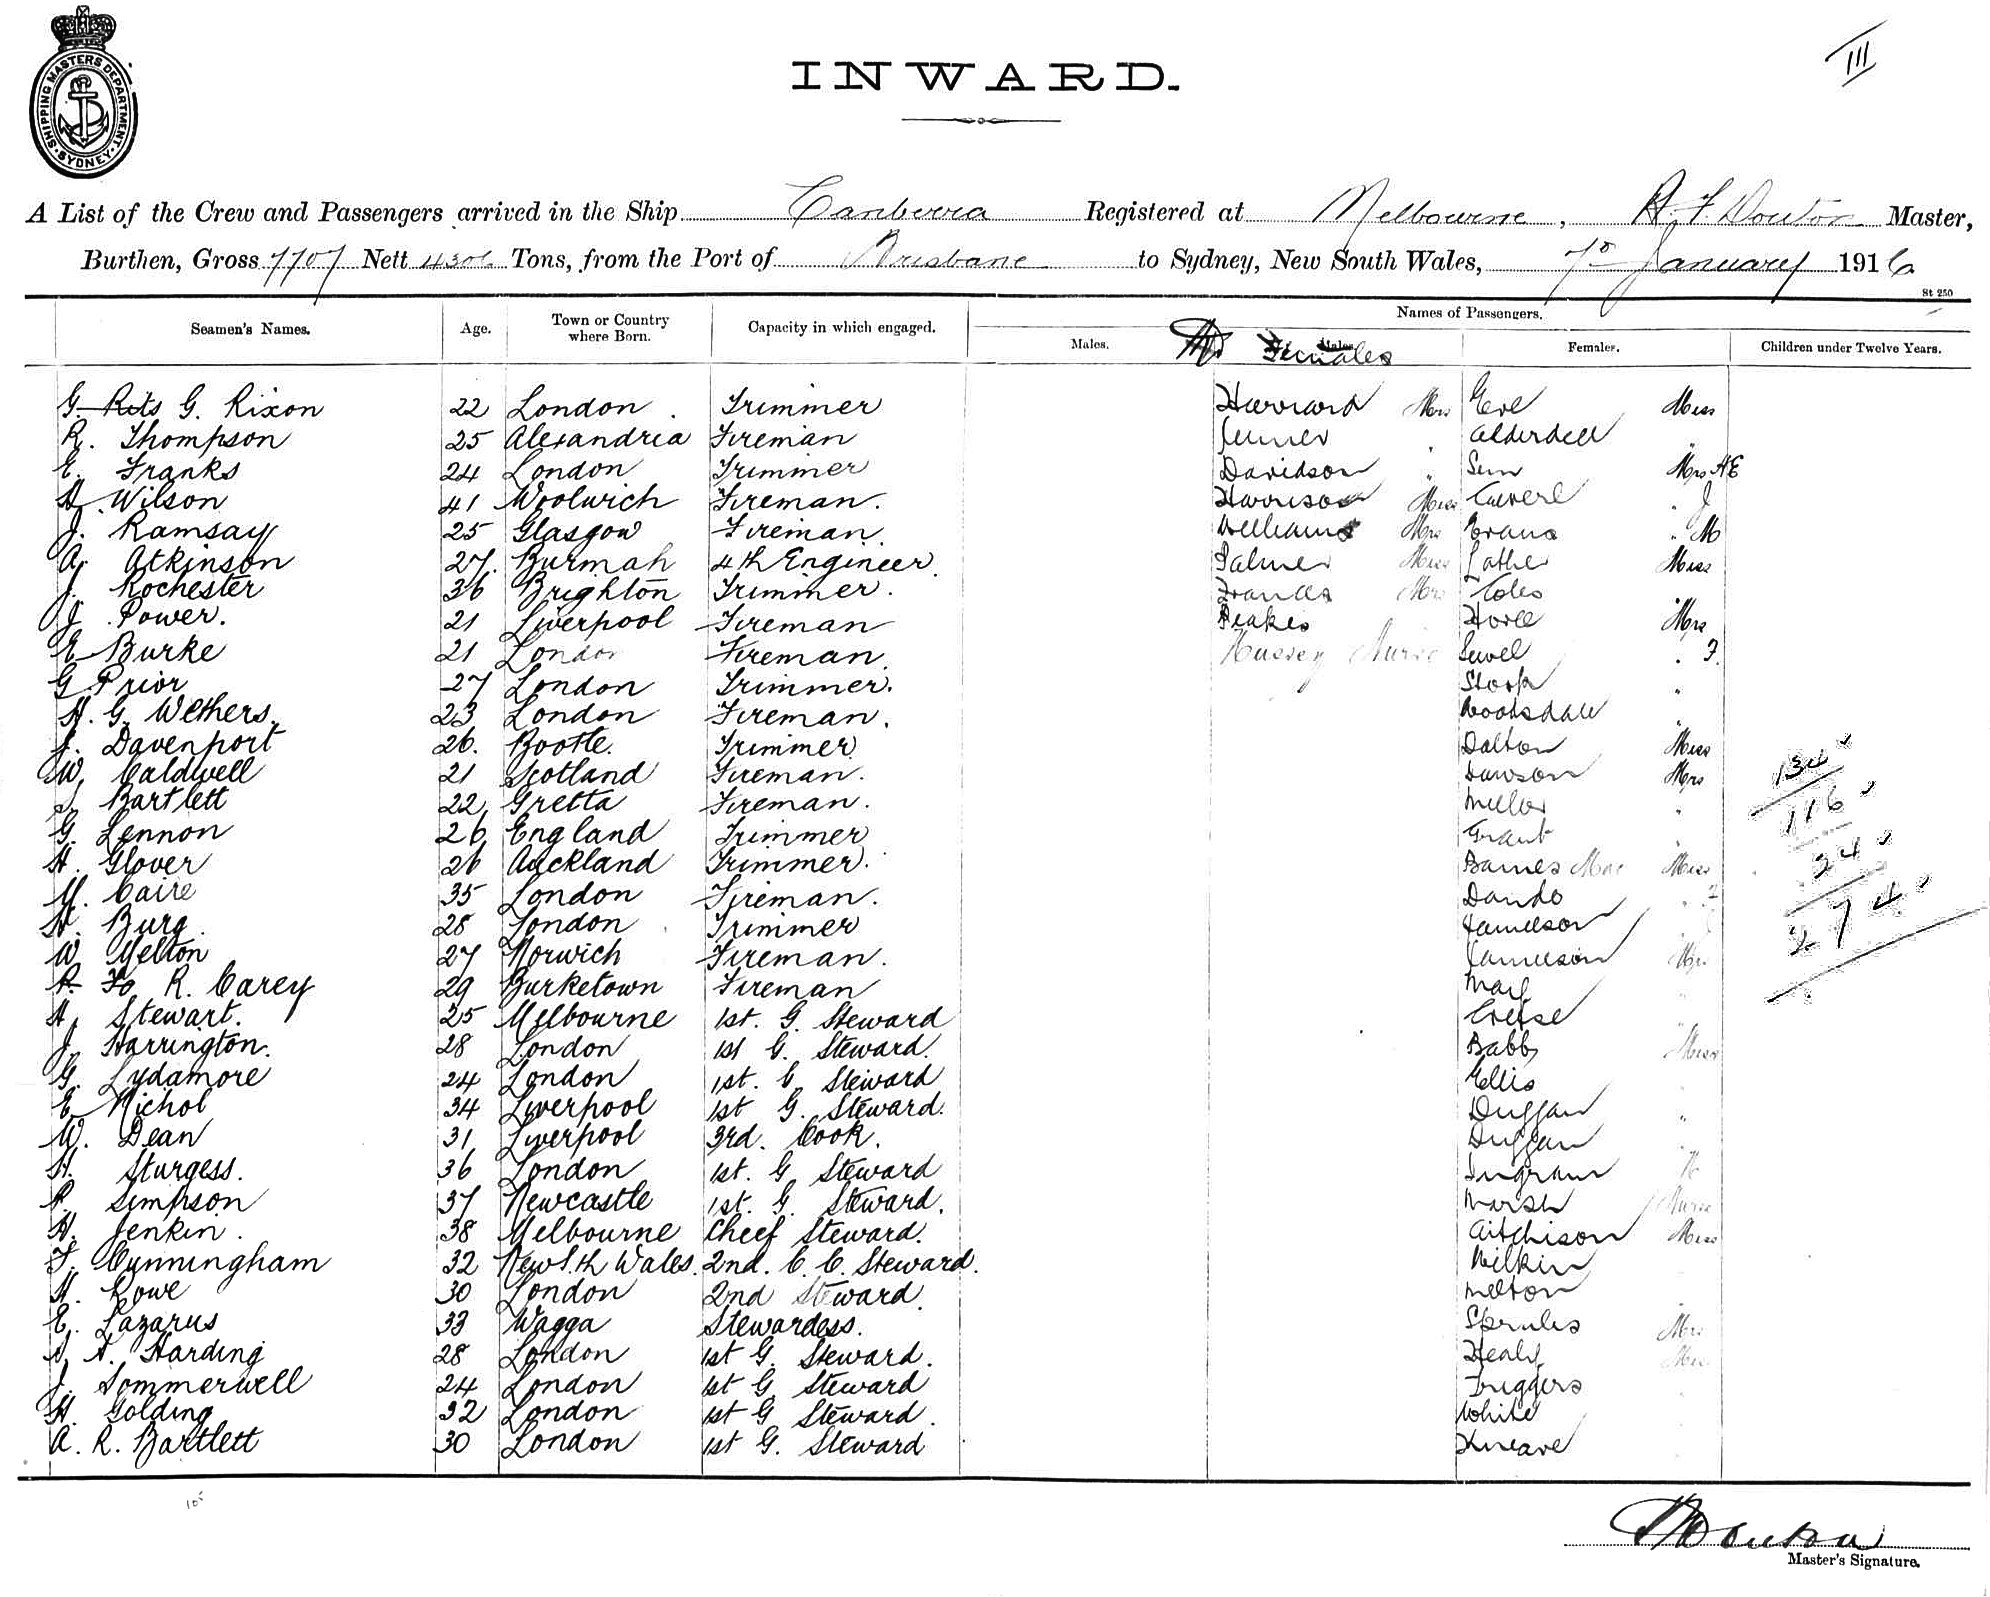 SHIPPING MASTERS DEPARTMENT
SYDNEY
III
INWARD.
A List of the Crew and Passengers arrived in the Ship Canberra Registered at Melbourne, Master,
Burthen, Gross 7707 Nett Tons, from the Port of Brisbane to Sydney, New South Wales, 7th January 1916
St 250
Seamen's Names. Age. Town or Country where Born. Capacity in which engaged. Names of Passengers.
Males. Males Females Females. Children under Twelve Years.
G. Rits G. Rixon 22 London. Trimmer Mrs Eve Miss
R. Thompson 25 Alexandria Fireman "
E. Franks 24 London Trimmer Davidson " Mrs HE
H. Wilson 41 Woolwich Fireman. Harrison Miss " J
J. Ramsay 25 Glasgow Fireman. Williams Mrs Evans " M
A. Atkinson 27. Burmah 4th Engineer. Palmer Miss Miss
J. Rochester 36 Brighton Trimmer. Francis Mrs Coles "
J. Power. 21 Liverpool Fireman Mrs
E Burke 21 London Fireman. Hussey Nurse " F.
G Prior 27 London Trimmer. "
H. G. Wethers. 23 London Fireman. "
J. Davenport 26. Bootle. Trimmer Dalton Miss
W. Caldwell 21 Scotland Fireman. Dawson Mrs
J. Bartlett 22 Gretta Fireman. Miller "
G. Lennon 26 England Trimmer Grant "
H. Glover 26 Auckland Trimmer. Barnes Miss
M. Caire 35 London Fireman. Dando "
H. Burg. 28 London Trimmer Jamieson
W Melton 27 Norwich Fireman. Jamieson Mrs
R. Carey 29 Burketown Fireman "
H. Stewart. 25 Melbourne 1st. G. Steward "
J. Harrington. 28 London 1st G. Steward. Babb Miss
G. Lydamore 24 London 1st. G. Steward Ellis "
E. Nichol 34 Liverpool 1st G. Steward. Duggan "
W. Dean 31 Liverpool 3rd. Cook. Duggan "
H. Sturgess. 36 London 1st. G Steward Ingram
R. Simpson 37 Newcastle 1st. G. Steward. Marsh Nurse
H. Jenkin. 38 Melbourne Chief Steward. Aitchison Miss
F. Cunningham 32 New Sth Wales. 2nd. C. C. Steward. Wilkin
H. Rowe 30 London 2nd Steward. Melton
E. Lazarus 33 Wagga Stewardess. Sprules Mrs
A. Harding 28 London 1st G. Steward. Healy
J. Sommerwell 24 London 1st G. Steward Triggers
H. Golding 32 London 1st G Steward. White
A. R. Bartlett 30 London 1st G. Steward
134
116
24
274
105
Master's Signature.